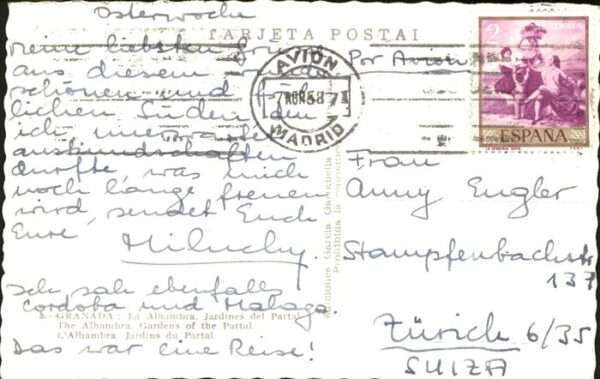 Osterwoche
TARJETA POSTAL
Meine liebsten Grüsse
aus diesem
schönen und
lichen Süden den
ich unerwartet
auskundschaften
durfte, was mich
noch lange freuen
wird, sendet Euch
Eure
Ich sah ebenfalls
Cordoba und Malaga.
GRANADA: La Alhambra. Jardines del Partal
The Alhambra. Gardens of the Partal
L'Alhambra. Jardins du Partal
Das war eine Reise!
AVION
7 ABR 58
MADRID
Por Avion
2
ESPAÑA
Frau
Anny Engler
Stampfenbachstr
137
Zürich 6/35
SUIZA